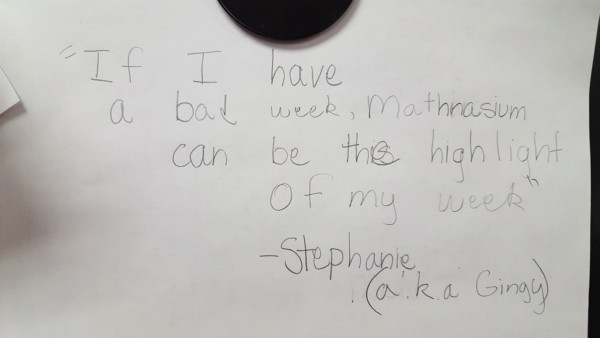 "If I have
a bad week, Mathnasium
can be the highlight
Of my week"
-Stephanie
(a.k.a Gingy)